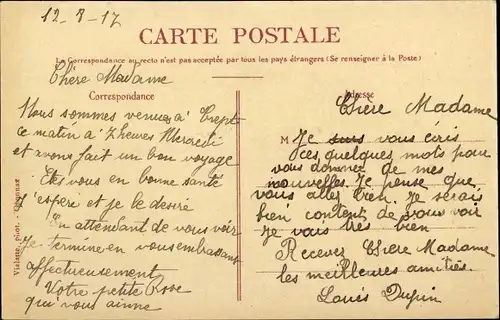 12-8-17
CARTE POSTALE
La Correspondance au recto n'est pas acceptée par tous les pays étrangers (Se renseigner à la Poste)
Chère Madame
Correspondance
Nous sommes venues à Crept
ce matin à 7 heures Mercredi
et avons fait un bon voyage
Etes vous en bonne santé
j'espère et je le désire
En attendant de vous voir
Je termine en vous embrassant
affectueusement
Votre petite Rose
qui vous aime
Vialatte, phot. - Oyonnax
Adresse
Chère Madame
M Je suis vous écris
ces quelques mots pour
vous donner de mes
nouvelles. Je pense que
vous allez bien. Je serais
bien content de vous voir
je vais très bien
Recevez Chère Madame
les meilleures amitiés.
Louis Dupin